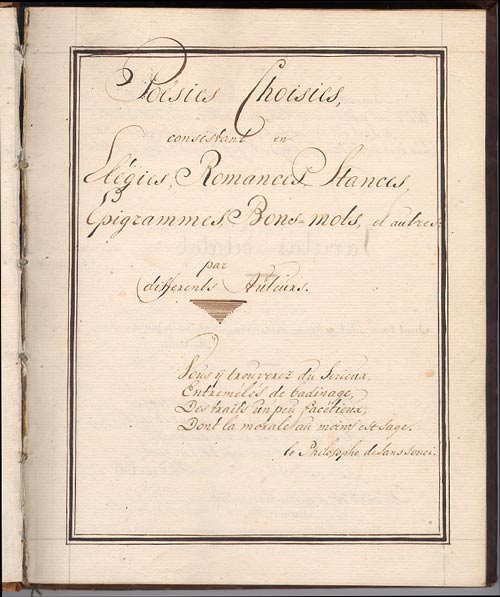 Poësies Choisies,
consistant en
Elégies, Romances, Stances,
Epigrammes, Bons-mots, et autres
par
differents Auteurs.
Vous y trouverez du Serieux,
Entremelés de badinage,
Des traits un peu facétieux,
Dont la morale au moins est sage.
le Philosophe de sans souci.